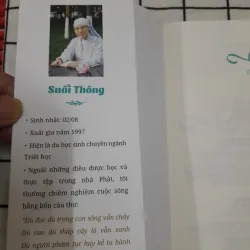 Suối Thông
• Sinh nhật: 02/08
• Xuất gia năm 1997
• Hiện là du học sinh chuyên ngành
Triết học
• Ngoài những điều được học và
thực tập trong nhà Phật, tôi
thường chiêm nghiệm cuộc sống
bằng bốn câu thơ:
"Dù đục dù trong con sông vẫn chảy
Dù cao dù thấp cây lá vẫn xanh
Dù người phàm tục hay kẻ tu hành